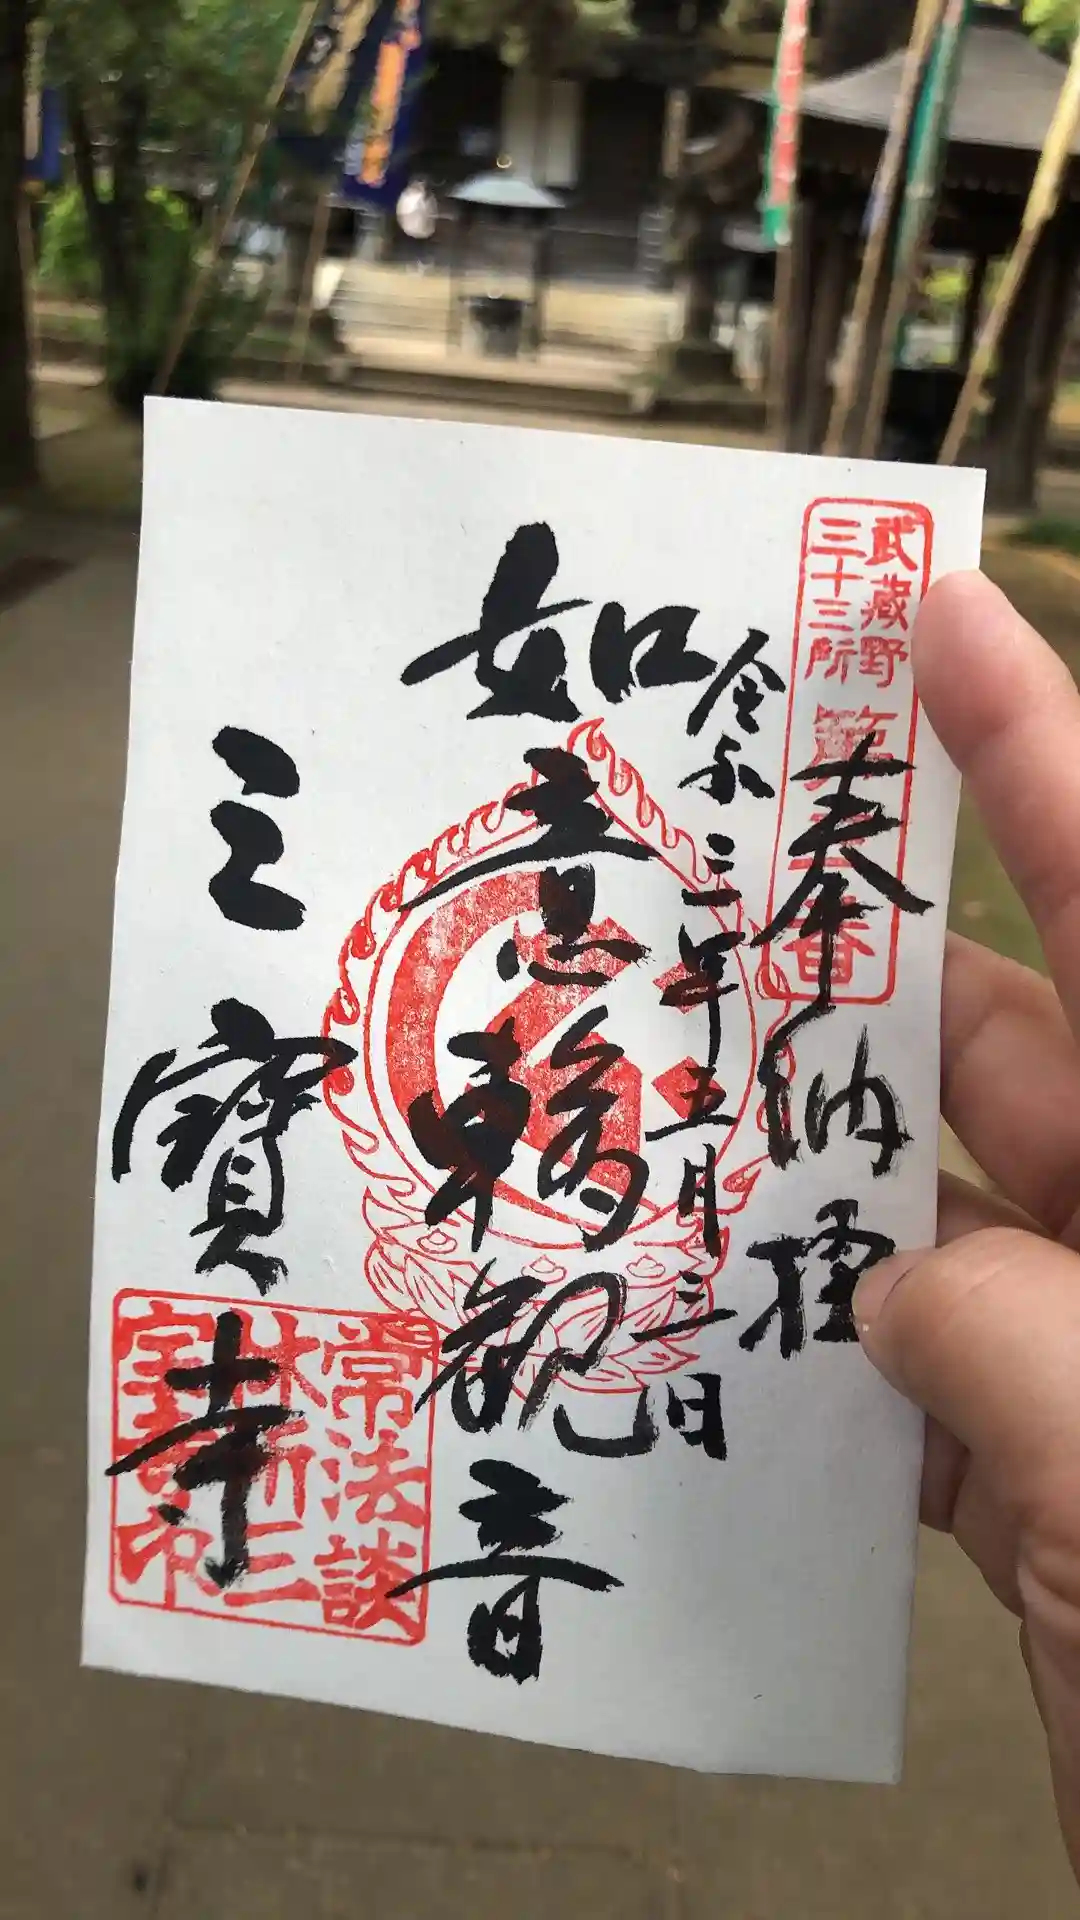 武蔵野
三十三所
第三番
奉納経
令和三年五月三日
如意輪観音
三寳寺
常法談
林所三
宝寺印